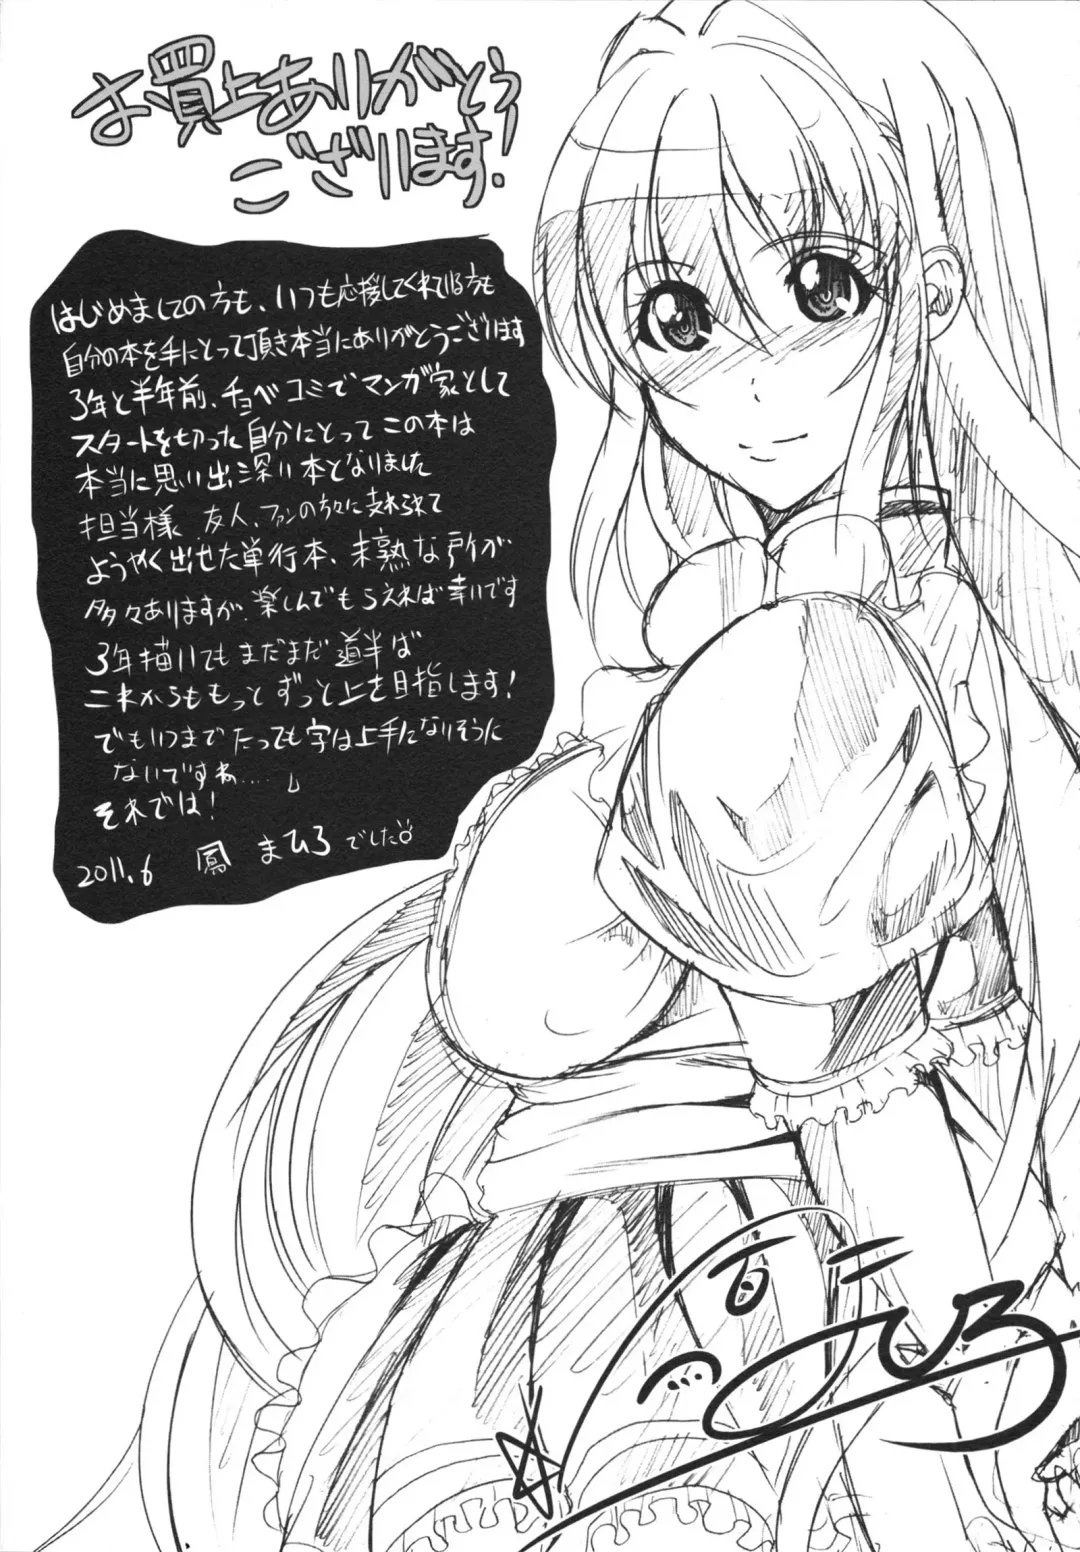 お買上ありがとう
ございます!
はじめましての方も、いつも応援してくれている方も
自分の本を手にとって頂き本当にありがとうございます
3年と半年前、チョベコミでマンガ家として
スタートを切った自分にとってこの本は
本当に思い出深い本となりました
担当様、友人、ファンの方々に支えられて
ようやく出せた単行本、未熟な所が
多々ありますが、楽しんでもらえれば幸いです
3年描いてもまだまだ道半ば
これからももっとずっと上を目指します!
でもいつまでたっても字は上手になりそうに
ないですね……」
それでは!
2011.6 鳳 まひろでした